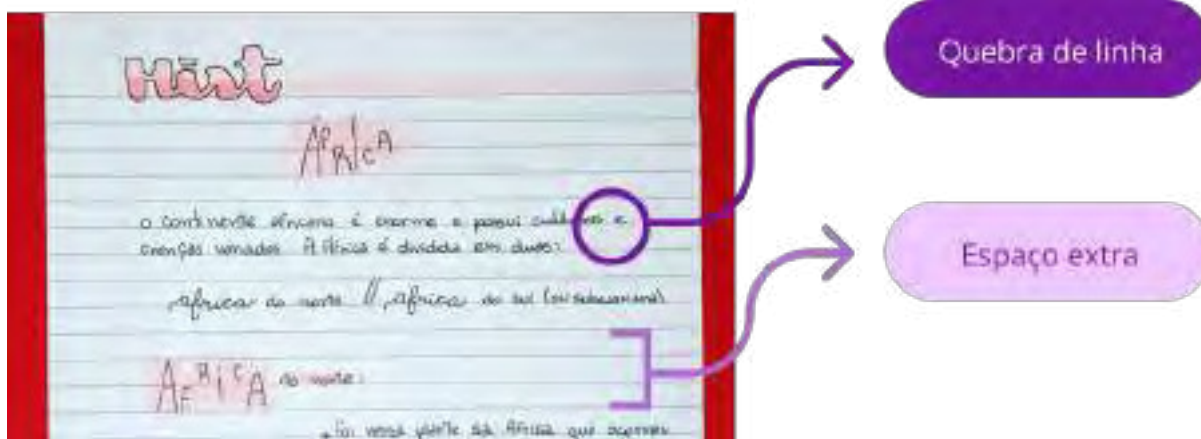 Hist
ÁFRICA
O continente africano é enorme e possui e
crenças variadas. A África é dividida em duas:
africa do norte // africa do sul (ou subsaariana)
AFRICA do norte:
• foi nessa parte da África que ocorreu
Quebra de linha
Espaço extra